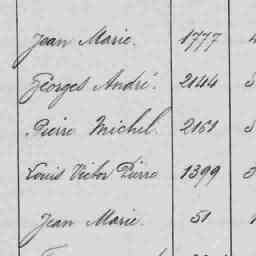 Jean Marie. 1777
Georges André. 2144
Pierre Michel. 2161
Louis Victor Pierre 1399
Jean Marie. 51